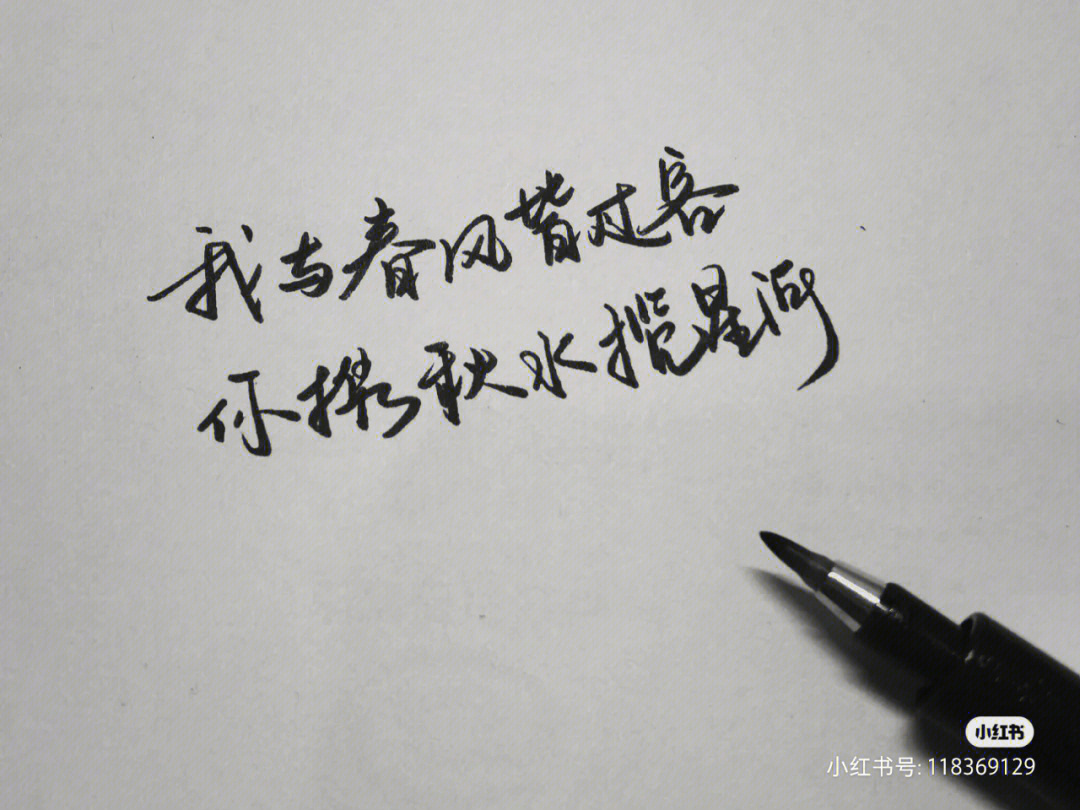 我与春风皆过客
你携秋水揽星河
小红书
小红书号: 118369129